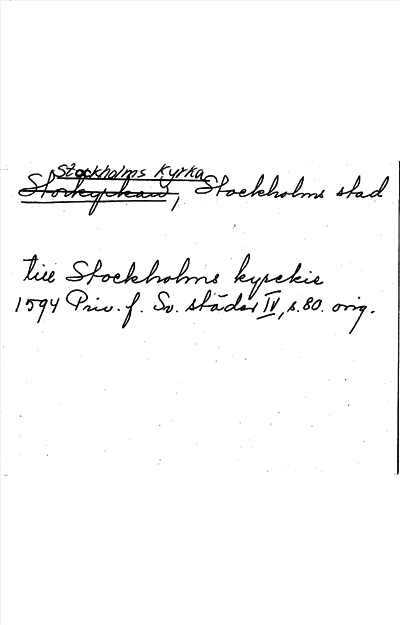 Stockholms Kyrka
Storkyrkan, Stockholms stad
till Stockholms kyrckie
1594 Priv. f. Sv. städer IV, s. 80. orig.